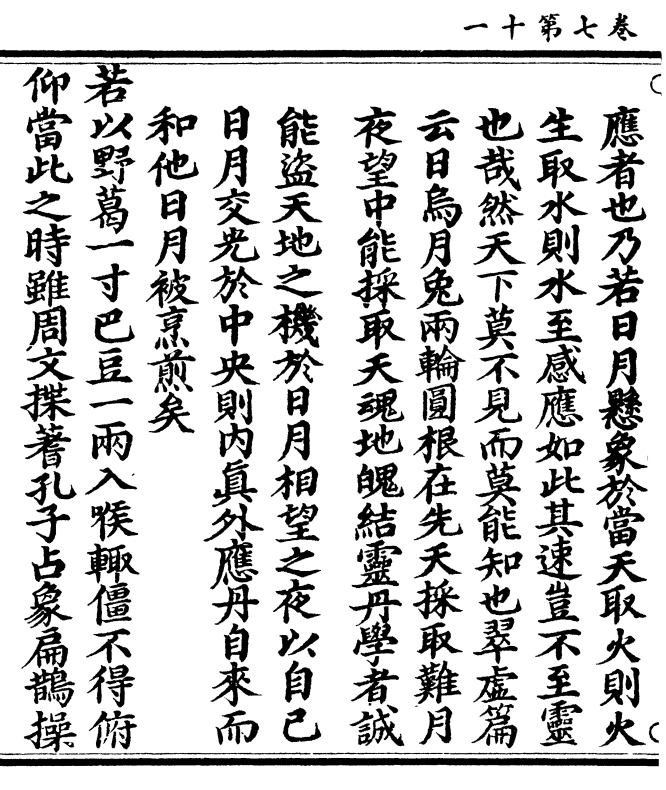 卷七第十一
應者也乃若日月懸象於當天取火則火
生取水則水至感應如此其速豈不至靈
也哉然天下莫不見而莫能知也翠虛篇
云日烏月兔兩輪圓根在先天採取難月
夜望中能採取天魂地魄結靈丹學者誠
能盜天地之機於日月相望之夜以自己
日月交光於中央則內真外應丹自來而
和他日月被烹煎矣
若以野葛一寸巴豆一兩入喉輙僵不得俯
仰當此之時雖周文揲蓍孔子占象扁鵲操